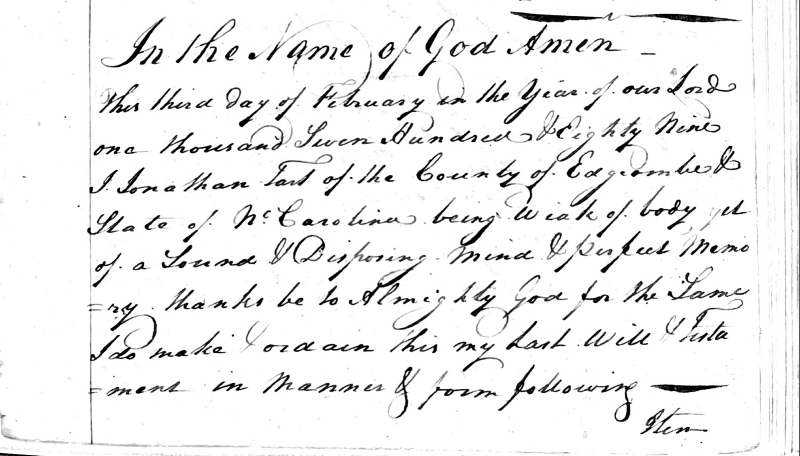 In the Name of God Amen –
this third day of February in the Year of our Lord
one thousand Seven Hundred & Eighty Nine
I Jonathan Tart of the County of Edgcombe &
State of No Carolina being Weak of body yet
of a Sound & Disposing Mind & perfect Memo
=ry thanks be to Almighty God for the Same
I do make & ordain this my Last Will & Testa
=ment in Manner & form following
Item